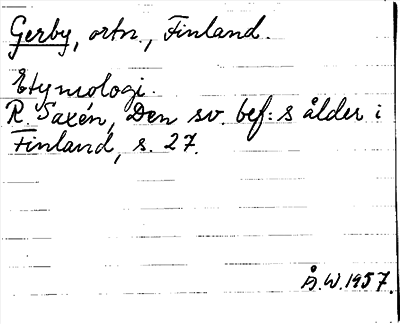 Gerby, ortn., Finland.
Etymologi.
R. Saxén, Den sv. bef:s ålder i
Finland, s. 27.
Å.W.1957.